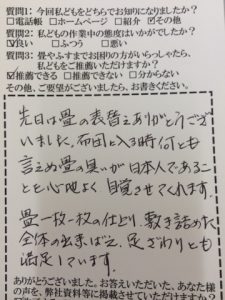 質問1: 今回私どもをどちらでお知りになりましたか?
□電話帳 □ホームページ □紹介 ☑その他
質問2: 私どもの作業中の態度はいかがでしたか?
☑良い □ふつう □悪い
質問3: 畳やふすまでお困りの方がいらっしゃったら、
私どもをご推薦いただけますか?
☑推薦できる □推薦できない □分からない
その他、ご要望がございましたら、お書きください。
先日は畳の表替えありがとうござ
いました。布団に入る時何とも
言えぬ畳の臭いが日本人であるこ
とを心地よく自覚させてくれます。
畳一枚一枚の仕上り、敷き詰めた
全体の出来ばえ、足ざわりとも
満足しています。
ありがとうございました。お答えいただいた、あなた様
の声を、弊社資料等に掲載させていただけますか?